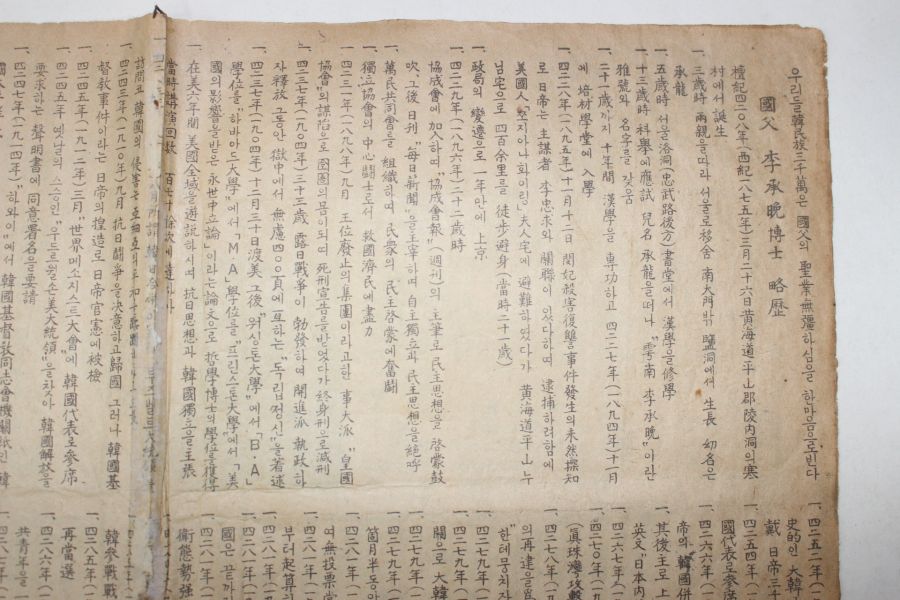 우리들 韓民族三千萬은 國父의 聖業無疆하심을 한마음으로빈다
國父 李承晩博士 略歷
一、檀紀四二○八年(西紀一八七五年)三月二十六日黃海道平山郡陵内洞의寒
村에서誕生
一、三歲時 兩親을따라 서울로移舍 南大門밖 鹽洞에서 生長 幼名은
承龍
一、五歲時 서울洛洞(忠武路後方)書堂에서 漢學을修學
一、十三歲時 科擧에應試 兒名 承龍을떠나 "雩南 李承晩"이란
雅號와 名字를 갖음
一、二十歲까지 十年間 漢學을 専功하고 四二二七年(一八九四年)十一月
에 培材學堂에 入學
一、四二二八年(一八九五年)十一月十二日 閔妃殺害復讐事件發生의未然探知
로 日帝는 主謀者 李忠求와 關聯이 있다하여 逮捕하려함에
美國人 夫人宅에 避難하였다가 黃海道平山누
님宅으로 四百余里를 徒步避身(當時二十一歲)
一、政局의 變遷으로 一年안에 上京
一、四二二九年(一八九六年)二十二歲時
協成會에加入하여 "協成會報"(週刊)의 主筆로 民主思想을 啓蒙鼓
吹、그後 日刊 "每日新聞"을主宰하며 自主獨立과 民主思想을絶呼
一、萬民共同會를 組織하여 民衆의 民主啓蒙에奮鬪
一、獨立協會의 中心鬪士로서 救國濟民에盡力
一、四二三一年(一八九八年)九月 王位廢止의集團이라고한 事大派 "皇國
協會"의謀陷으로 囹圄의몸이되여 死刑宣告를받었다가 終身刑으로減刑
一、四二三七年(一九○四年)三十三歲 露日戰爭이 勃發하여 開進派 執政하
자釋放 그동안 獄中에서 無慮四○○頁에 亘하는 "독립정신"을著述
一、四二三七年(一九○四年)十一月三十日渡美 그後 "워싱톤大學"에서 「B·A」
學位를 "하바아드大學"에서 「M·A學位를 "프린스톤大學"에서 「美
國의影響을받은 永世中立論」이라는論文으로 哲學博士의學位를獲得
一、在美六年間 美國全域을遊說하시며 抗日思想과 韓國獨立을主張
當時講演回數 百七十餘次에
訪問코 韓國의
一、四二四三年(一九一○年)九月 抗日鬪爭을決意하고歸國 그러나 韓國基
督敎事件이라는 日帝의 捏造로 日帝官憲에被檢
一、四二四五年(一九一二年)三月 "世界메소지스트大會"에 韓國代表로參席
一、四二四五年 옛날의 스승인 "우드로윌손美大統領"을찾아 韓國解放을
要求하는 聲明書에 同意署名을要請
(一九一四年) "하와이"에서 韓國基督敎同志會機關紙인 韓
一、四二五一年(
史的인 大韓
戴 日帝三千
一、四二五四年(
國代表로參席
一、四二六六年(
帝의 韓國併
其後主로 上
英文 "日本内
一、四二七○年(
(眞珠灣攻擊
一、四二七八年(
의再建을
한테뭉치자
一、四二七九年(
一、四二七九年(
關으로 大韓
一、四二七九年(
箇月半동안
一、四二八一年(
여無投票當
부터起算
一、四二八一年(
國은 끝까
一、四二八一年(
衛態勢强
一、四二八五年(
韓參戰
再當選
一、四二八六年(
共靑年을